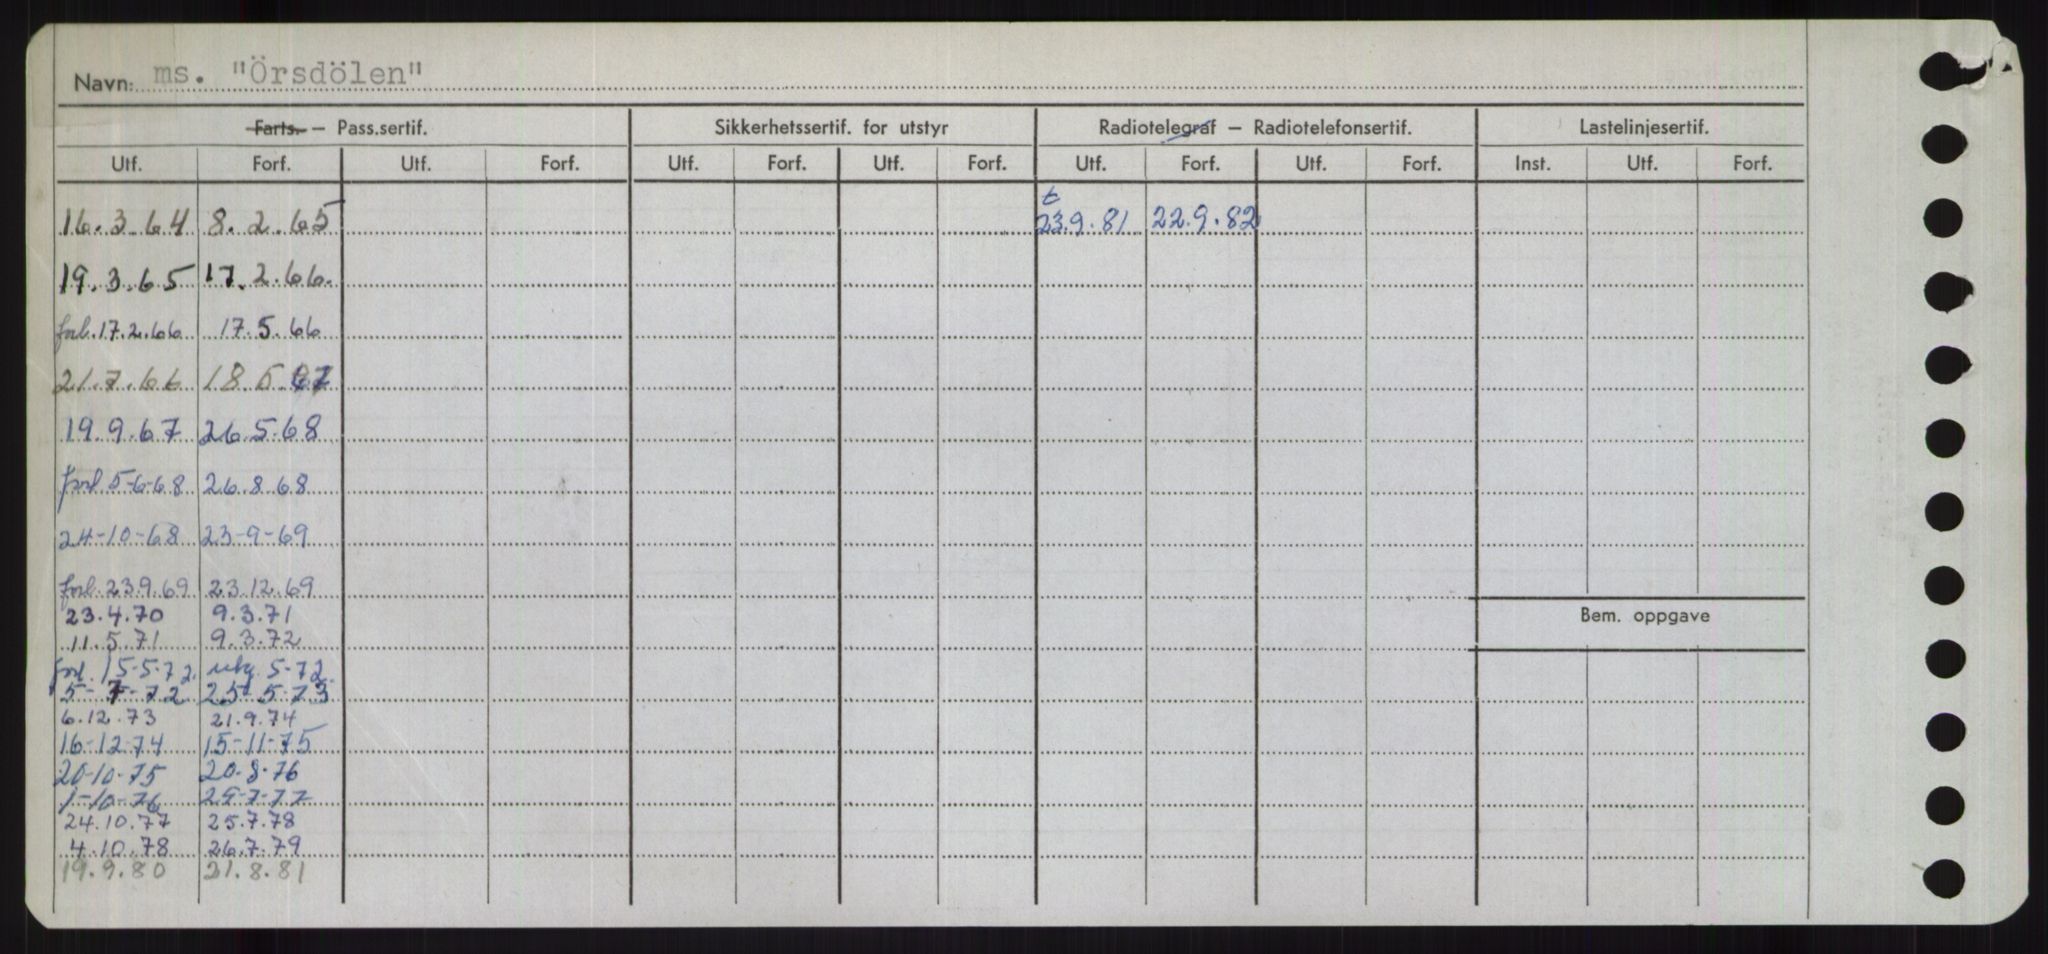 Navn: ms. "Örsdölen"
Farts. — Pass.sertif. Sikkerhetssertif. for utstyr Radiotelegraf — Radiotelefonsertif. Lastelinjesertif.
Utf. Forf. Utf. Forf. Utf. Forf. Utf. Forf. Utf. Forf. Utf. Forf. Inst. Utf. Forf.
t
16.3.64 8.2.65 23.9.81 22.9.82
19.3.65 17.2.66.
forl. 17.2.66 17.5.66
21.7.66 18.5.67
19.9.67 26.5.68
forl 5-6-68 26.8.68
24-10-68 23-9-69
forl. 23.9.69 23.12.69
23.4.70 9.3.71
Bem. oppgave
11.5.71 9.3.72
forl. 15-5-72. utg. 5-72.
5-7-72 25-5-73
6.12.73 21.9.74
16-12-74 15-11-75
20-10-75 20.8.76
1-10-76 29-7-77
24.10.77 25.7.78
4.10.78 26.7.79
19.9.80 21.8.81